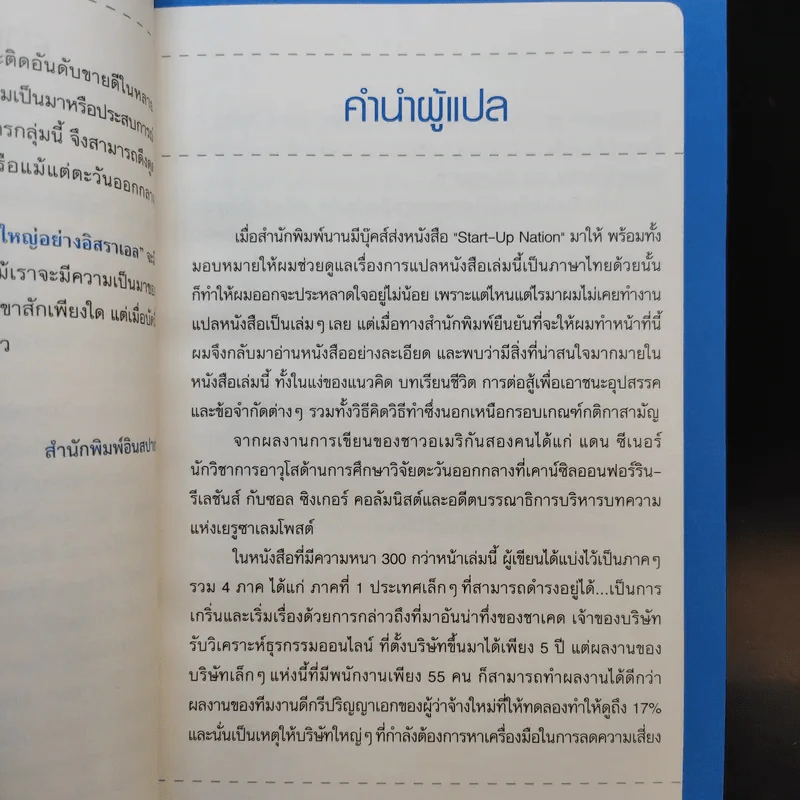 ะติดอันดับขายดีในหลาย
มเป็นมาหรือประสบการณ์
รกลุ่มนี้ จึงสามารถดึงดูด
รือแม้แต่ตะวันออกกลาง
ใหญ่อย่างอิสราเอล" จะมี
ม้เราจะมีความเป็นมาของ
ขาสักเพียงใด แต่เมื่อ
ว
สำนักพิมพ์อินสปาย
คำนำผู้แปล
เมื่อสำนักพิมพ์นานมีบุ๊คส์ส่งหนังสือ "Start-Up Nation" มาให้ พร้อมทั้ง
มอบหมายให้ผมช่วยดูแลเรื่องการแปลหนังสือเล่มนี้เป็นภาษาไทยด้วยนั้น
ก็ทำให้ผมออกจะประหลาดใจอยู่ไม่น้อย เพราะแต่ไหนแต่ไรมาผมไม่เคยทำงาน
แปลหนังสือเป็นเล่มๆ เลย แต่เมื่อทางสำนักพิมพ์ยืนยันที่จะให้ผมทำหน้าที่นี้
ผมจึงกลับมาอ่านหนังสืออย่างละเอียด และพบว่ามีสิ่งที่น่าสนใจมากมายใน
หนังสือเล่มนี้ ทั้งในแง่ของแนวคิด บทเรียนชีวิต การต่อสู้เพื่อเอาชนะอุปสรรค
และข้อจำกัดต่างๆ รวมทั้งวิธีคิดวิธีทำซึ่งนอกเหนือกรอบเกณฑ์กติกาสามัญ
จากผลงานการเขียนของชาวอเมริกันสองคนได้แก่ แดน ซีเนอร์
นักวิชาการอาวุโสด้านการศึกษาวิจัยตะวันออกกลางที่เคาน์ซิลออนฟอร์ริน-
รีเลชันส์ กับซอล ซิงเกอร์ คอลัมนิสต์และอดีตบรรณาธิการบริหารบทความ
แห่งเยรูซาเลมโพสต์
ในหนังสือที่มีความหนา 300 กว่าหน้าเล่มนี้ ผู้เขียนได้แบ่งไว้เป็นภาคๆ
รวม 4 ภาค ได้แก่ ภาคที่ 1 ประเทศเล็กๆ ที่สามารถดำรงอยู่ได้...เป็นการ
เกริ่นและเริ่มเรื่องด้วยการกล่าวถึงที่มาอันน่าทึ่งของชาเคด เจ้าของบริษัท
รับวิเคราะห์ธุรกรรมออนไลน์ ที่ตั้งบริษัทขึ้นมาได้เพียง 5 ปี แต่ผลงานของ
บริษัทเล็กๆ แห่งนี้ที่มีพนักงานเพียง 55 คน ก็สามารถทำผลงานได้ดีกว่า
ผลงานของทีมงานดีกรีปริญญาเอกของผู้ว่าจ้างใหม่ที่ให้ทดลองทำให้ดูถึง 17%
และนั่นเป็นเหตุให้บริษัทใหญ่ๆ ที่กำลังต้องการหาเครื่องมือในการลดความเสี่ยง